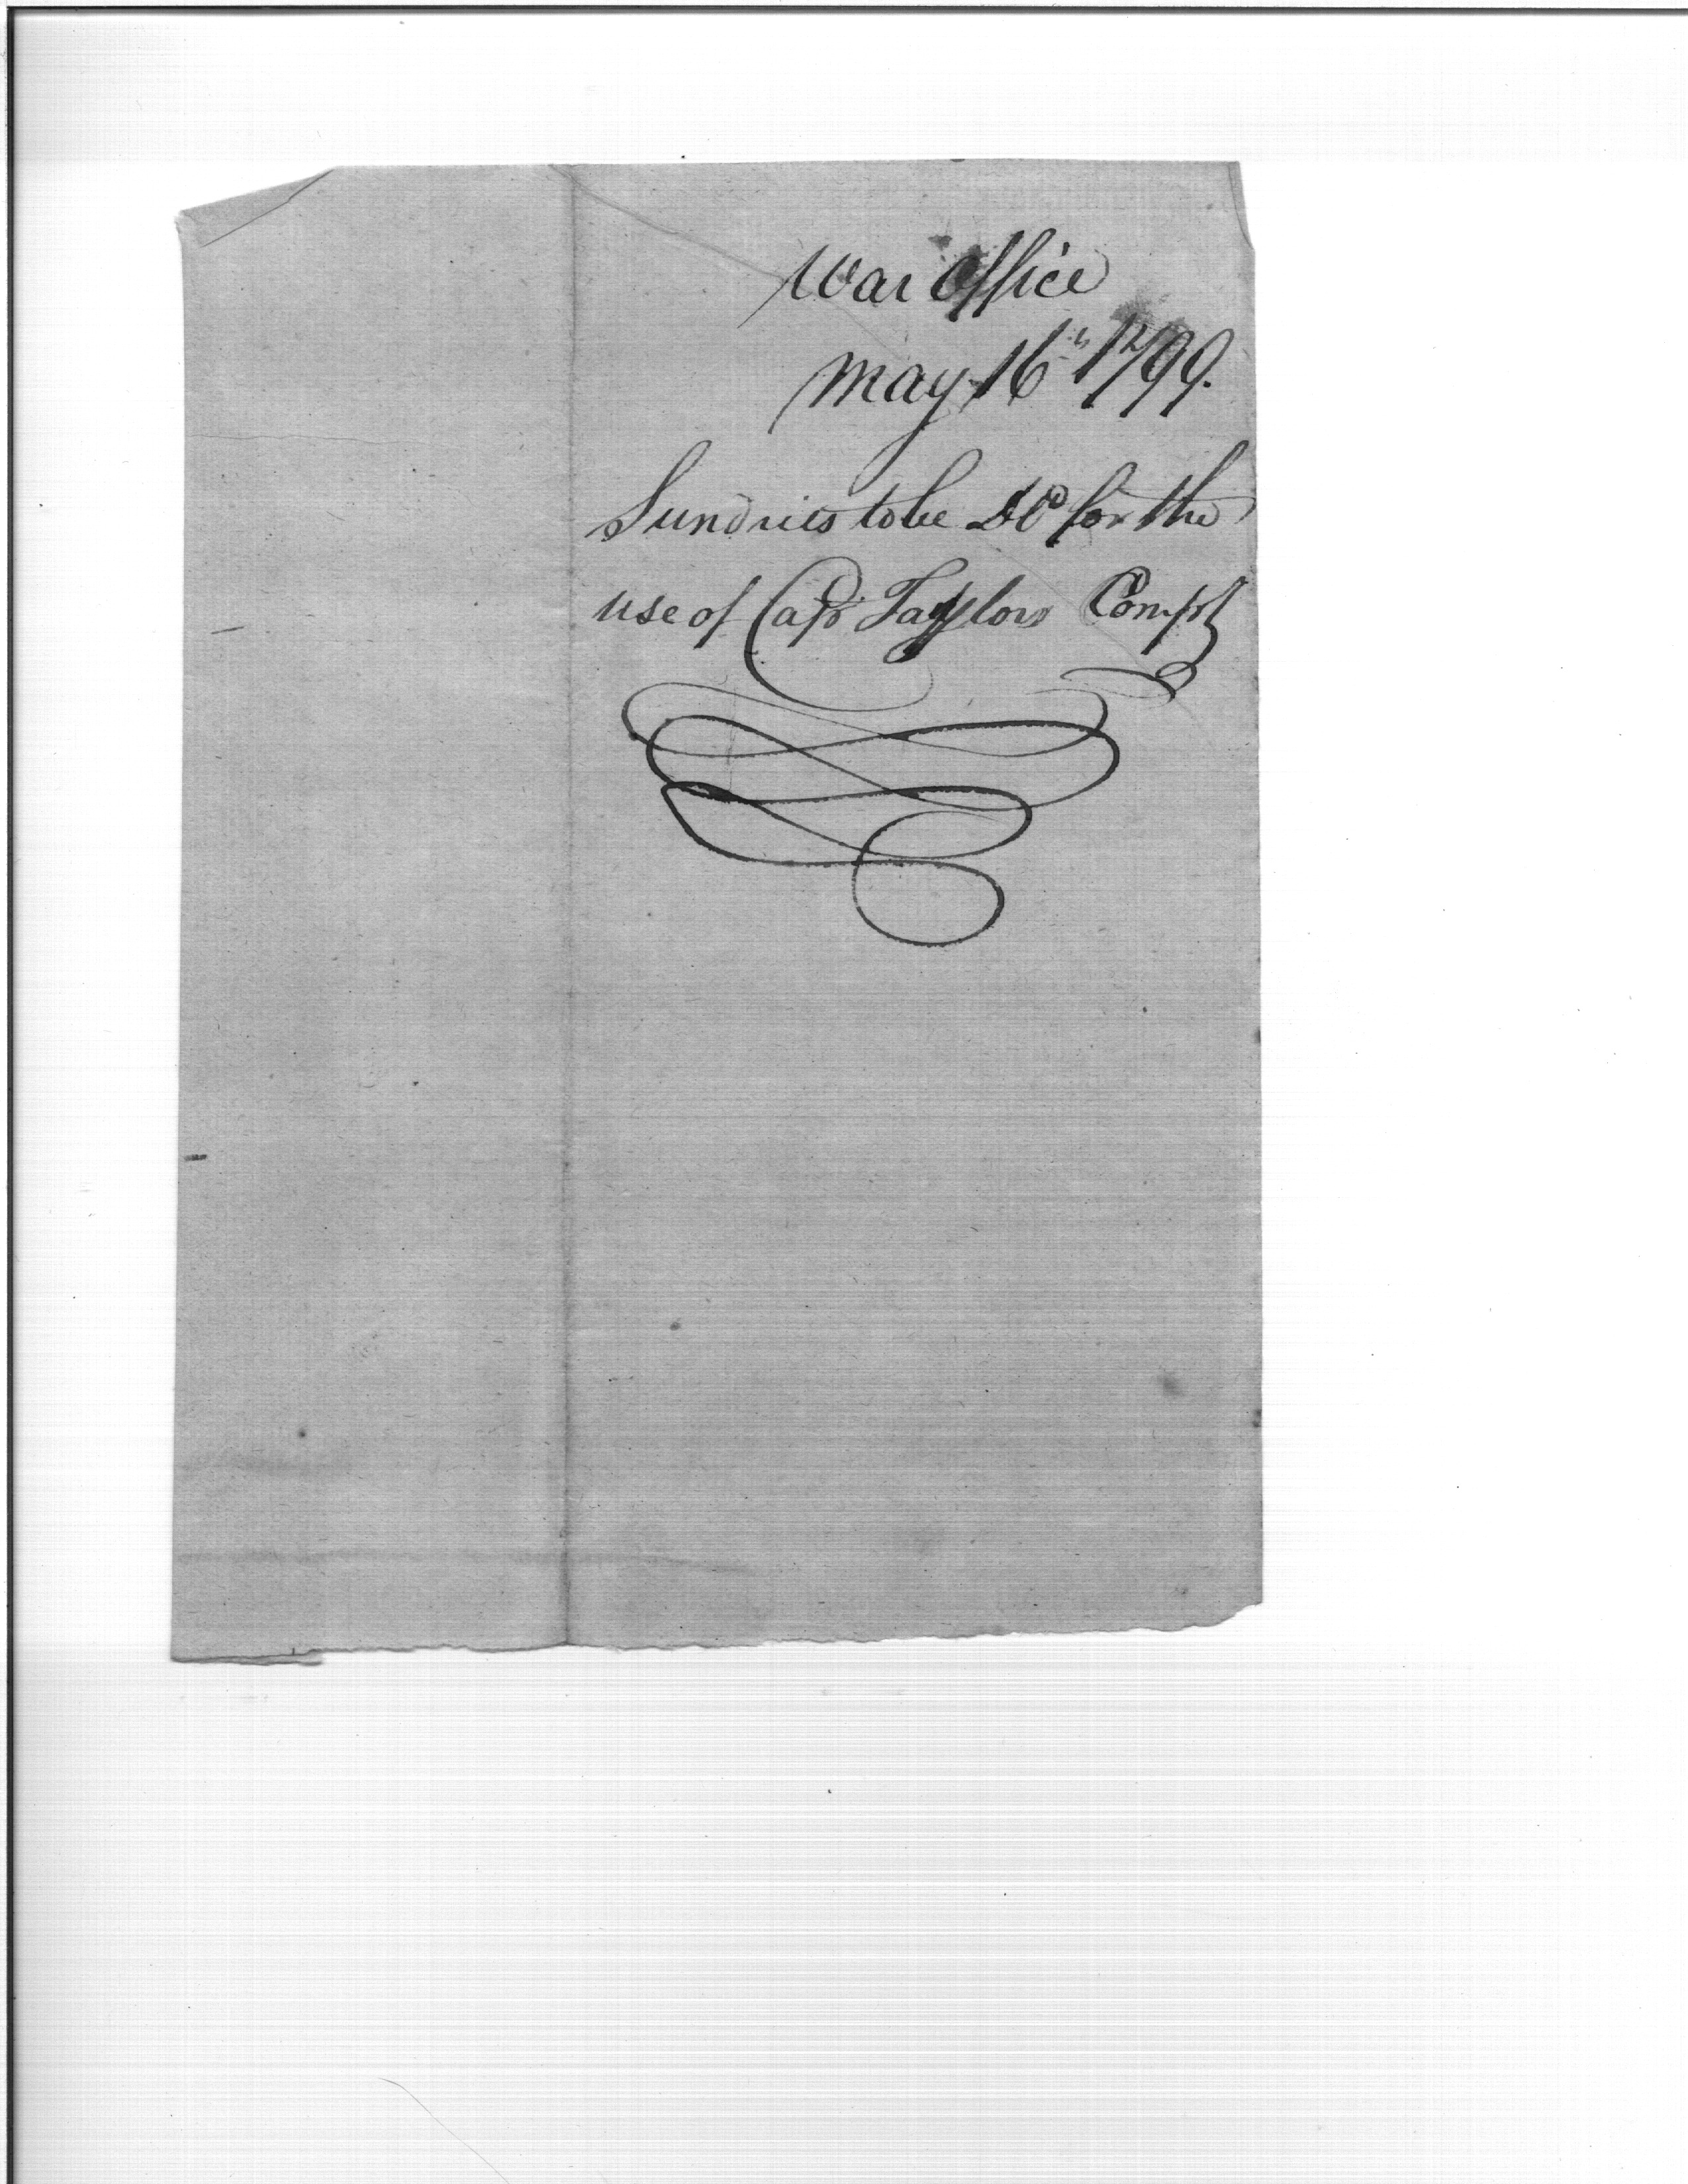 War Office
May 16th 1799.
Sundries to be DD for the
use of Capt Taylors Compy